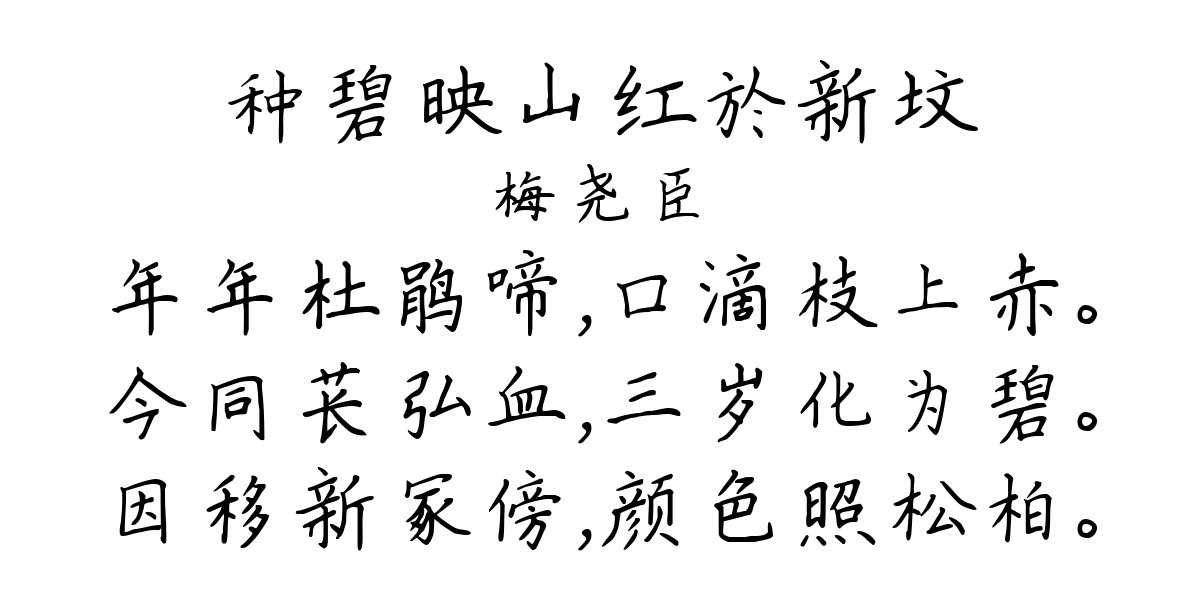 种碧映山红於新坟
梅尧臣
年年杜鹃啼,口滴枝上赤。
今同苌弘血,三岁化为碧。
因移新冢傍,颜色照松柏。